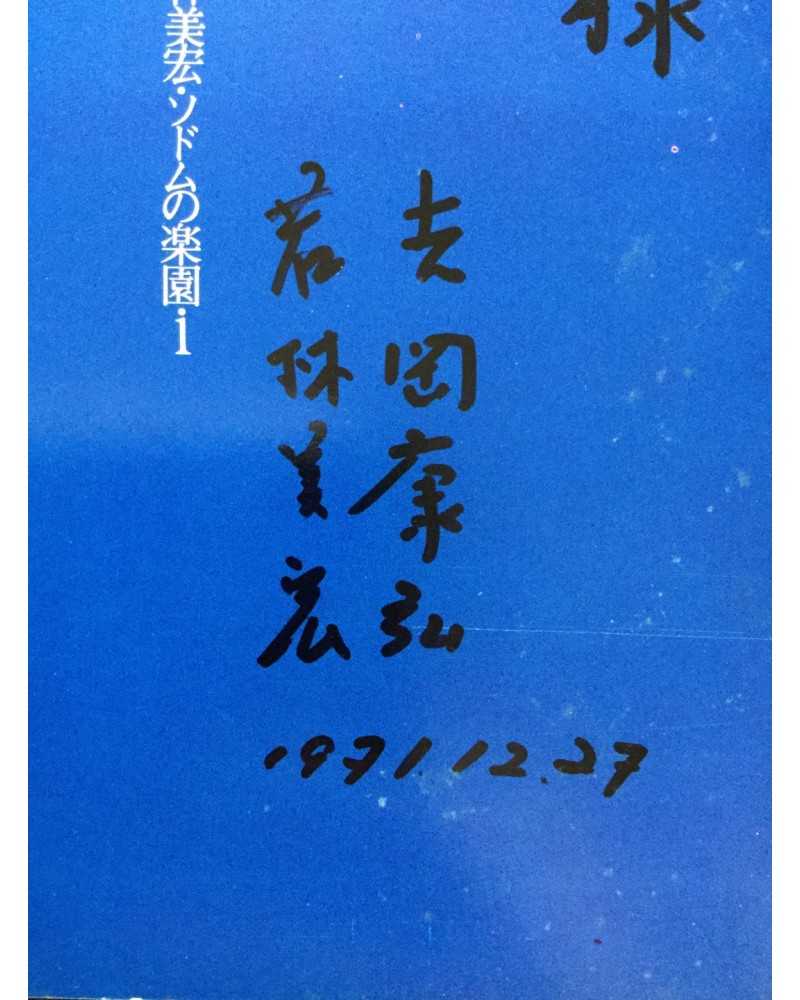 様
吉岡康弘
若林美宏
1971.12.27
美宏・ソドムの楽園・i